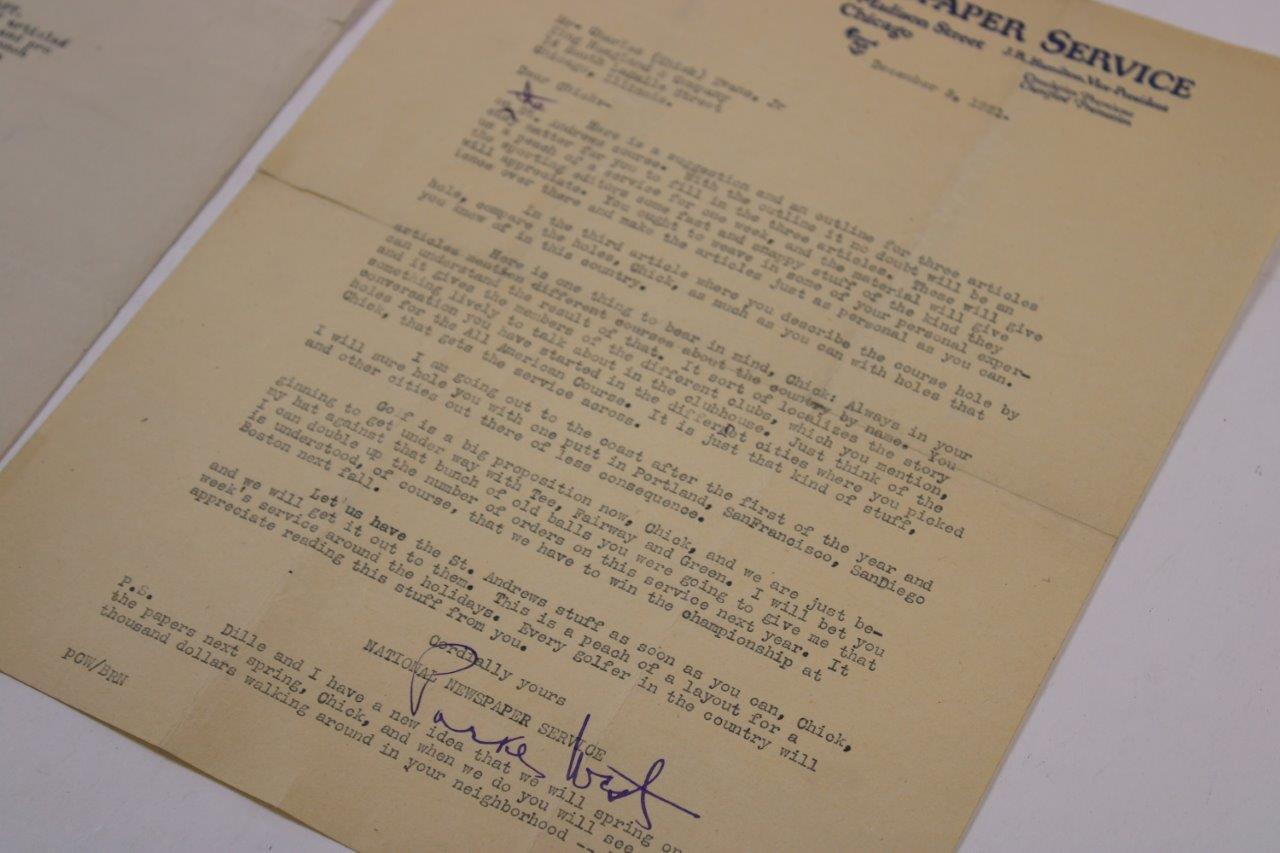 articled
and pro
PAPER SERVICE
Madison Street J.R. Hamilton, Vice-President
Chicago
December 5, 1921.
Mr. Charles (Chick) Evans, Jr
Company
Street
Chicago, Illinois.
Dear Chick:-
Here is a suggestion and an outline for three articles
on St. Andrews course. With the outline it no doubt will be an
matter for you to fill in the three articles. These will give
us a peach of a service for one week, and the material will give
the sporting editors some fast and snappy stuff of the kind they
will appreciate. You ought to weave in some of your personal exper-
ience over there and make the articles just as personal as you can.
In the third article where you describe the course hole by
hole, compare the holes, Chick, as much as you can with holes that
you know of in this country.
Here is one thing to bear in mind, Chick: Always in your
articles mention different courses about the country by name. You
can understand the result of that. It sort of localizes the story
and it gives the members of the different clubs, which you mention,
something lively to talk about in the clubhouse. Just think of the
conversation you have started in the different cities where you picked
holes for the All American Course. It is just that kind of stuff,
Chick, that gets the service across.
I am going out to the coast after the first of the year and
I will sure hole you with one putt in Portland, SanFrancisco, SanDiego
and other cities out there of less consequence.
Golf is a big proposition now, Chick, and we are just be-
ginning to get under way with Tee, Fairway and Green. I will bet you
my hat against that bunch of old balls you were going to give me that
I can double up the number of orders on this service next year. It
is understood, of course, that we have to win the championship at
Boston next fall.
Let us have the St. Andrews stuff as soon as you can, Chick,
and we will get it out to them. This is a peach of a layout for a
week's service around the holidays. Every golfer in the country will
appreciate reading this stuff from you.
Cordially yours
NATIONAL NEWSPAPER SERVICE
Parke West
P.S. Dille and I have a new idea that we will spring on
the papers next spring, Chick, and when we do you will see
thousand dollars walking around in your neighborhood --
PCW/BRN